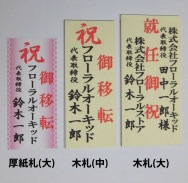 祝
御移転
フローラルオーキッド
代表取締役 鈴木一郎
祝
御移転
フローラルオーキッド
代表取締役 鈴木一郎
株式会社フローラルオーキッド
代表取締役 田中一郎様
就任御祝
株式会社
代表取締役 鈴木一郎
厚紙札(大)
木札(中)
木札(大)